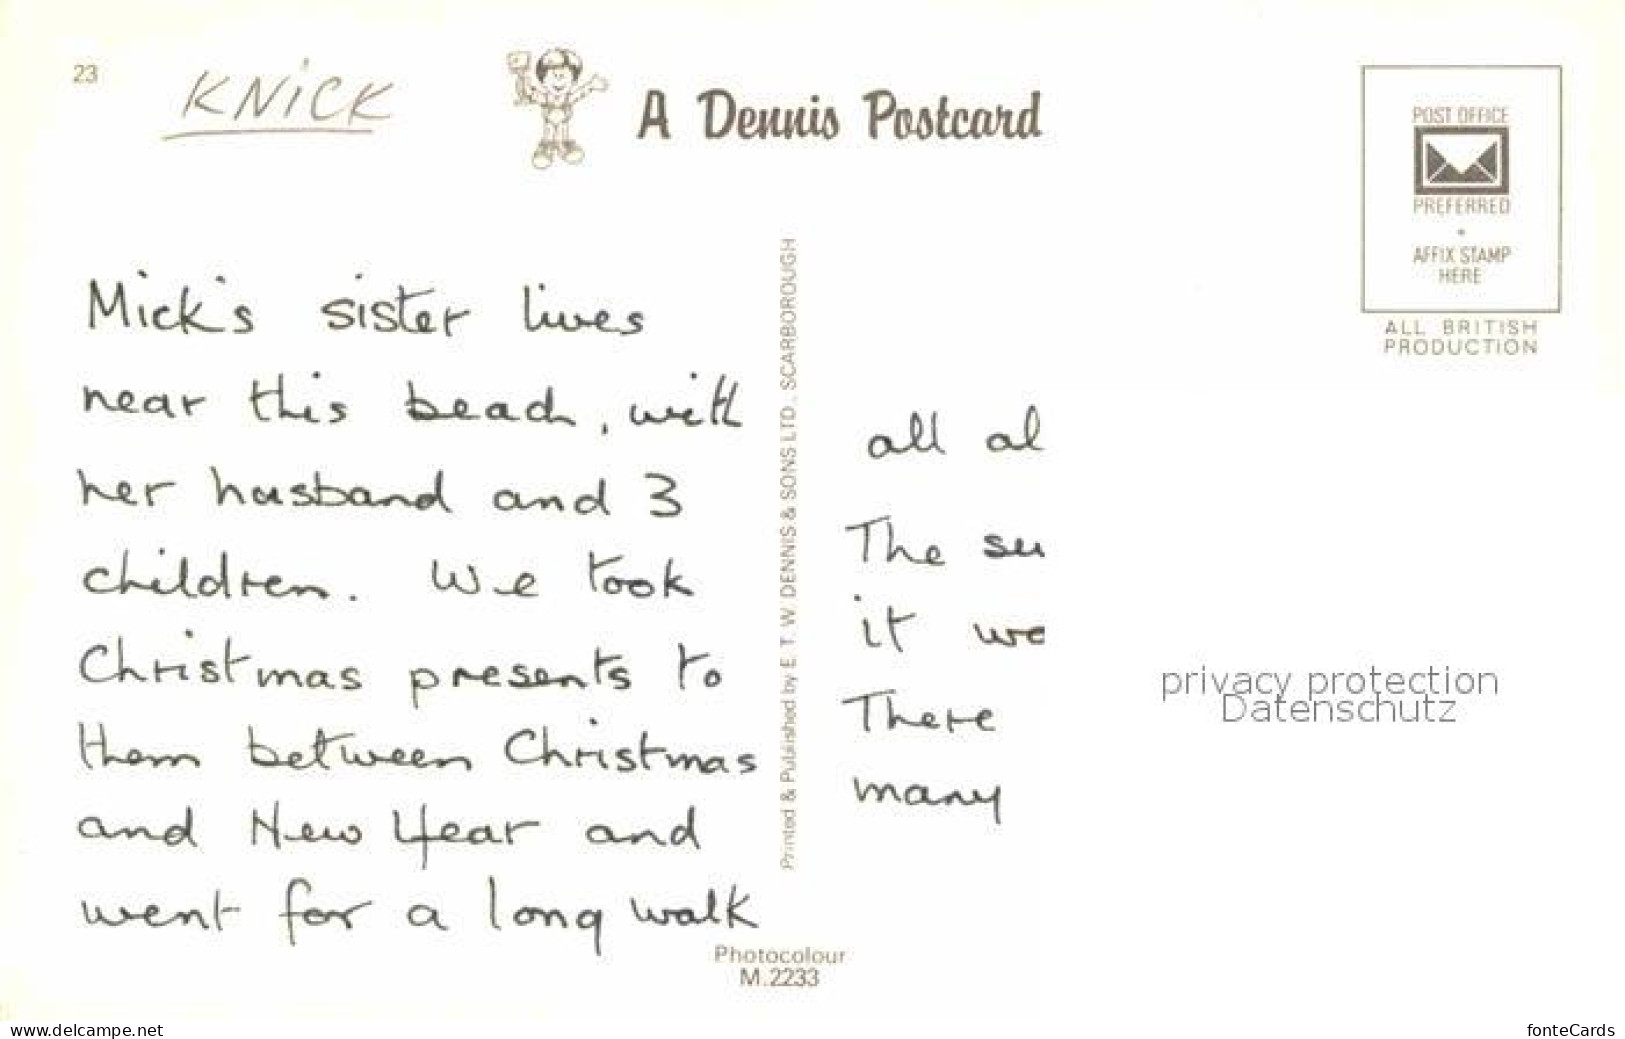 23
KNiCK
A Dennis Postcard
POST OFFICE
PREFERRED
AFFIX STAMP
HERE
ALL BRITISH
PRODUCTION
Mick's sister lives
near this beach, with
her husband and 3
children. We took
Christmas presents to
them between Christmas
and New Year and
went for a long walk
Printed & Published by E. T. W. DENNIS & SONS LTD., SCARBOROUGH
all al
The su
it wo
There
many
privacy protection
Datenschutz
Photocolour
M.2233
www.delcampe.net
fonteCards